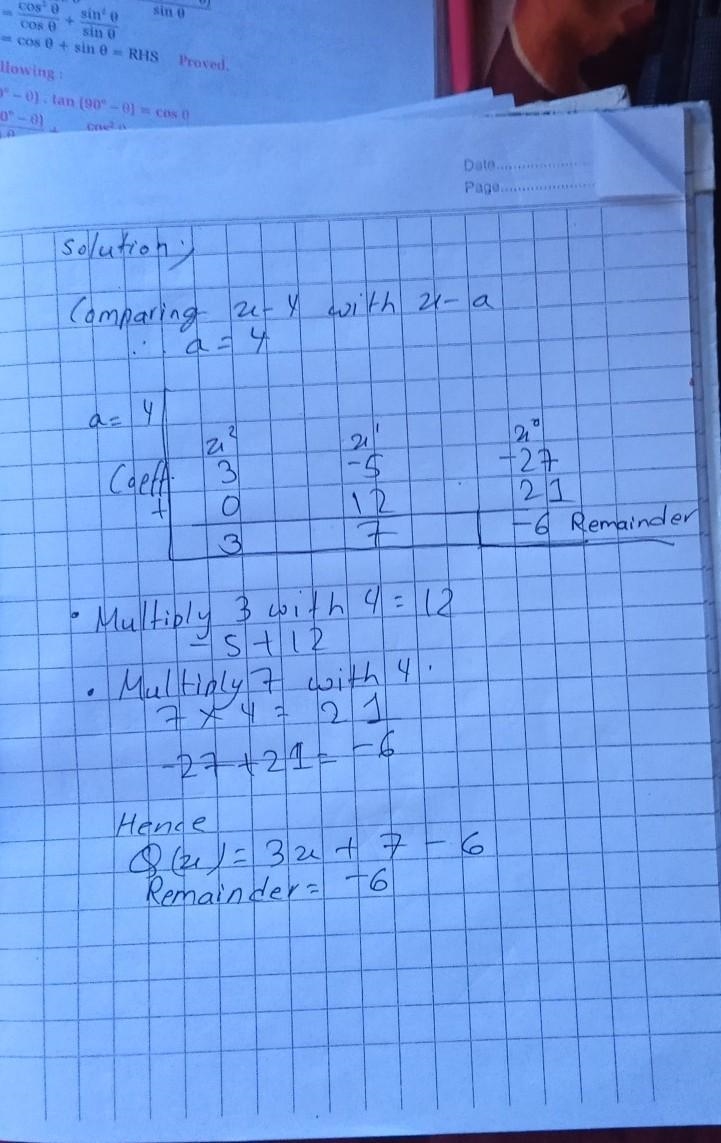 = cos² θ / cos θ + sin² θ / sin θ
sin θ
= cos θ + sin θ = RHS Proved.
llowing :
° – θ) . tan (90° – θ) = cos θ
0° – θ)
cos² θ
Date
Page
Solution;
Comparing x-4 with x-a
∴ a = 4
a= 4
x² x¹ x⁰
Coeff. 3 -5 -27
+ 0 12 21
3 7 -6 Remainder
• Multiply 3 with 4 = 12
-5+12
• Multiply 7 with 4.
7 × 4 = 21
-27+21=-6
Hence
Q(x)= 3x + 7 - 6
Remainder= -6